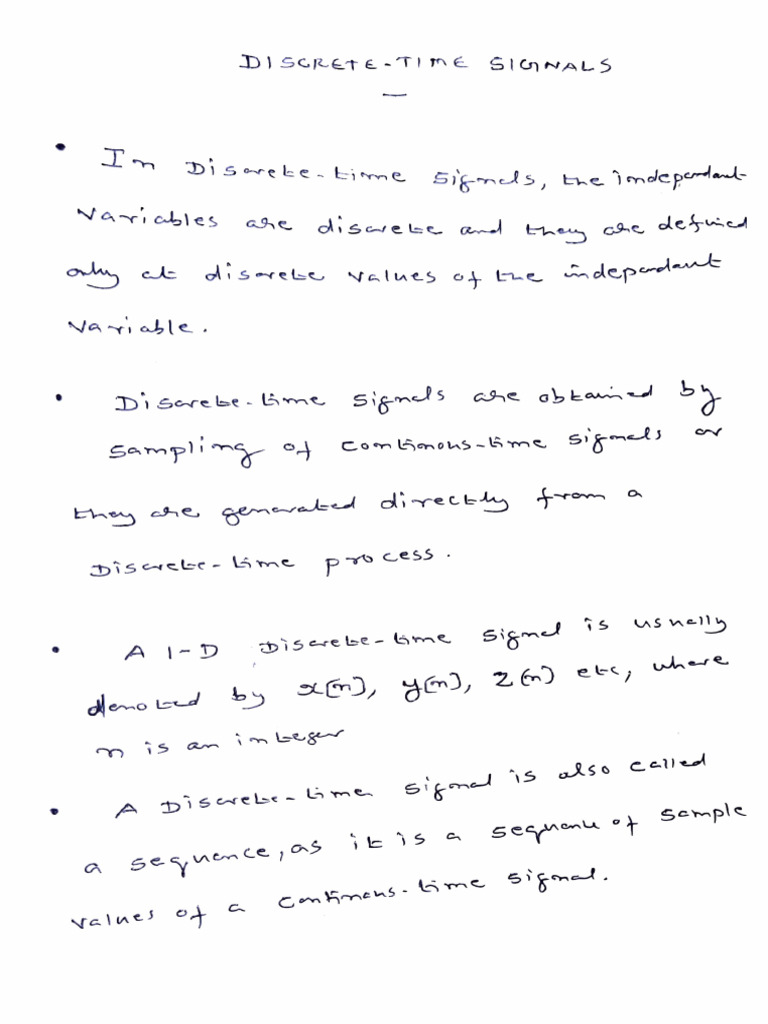 DISCRETE-TIME SIGNALS
• In Discrete-time signals, the independant
variables are discrete and they are defined
only at discrete values of the independant
variable.
• Discrete-time signals are obtained by
sampling of continous-time signals or
they are generated directly from a
Discrete-time process.
• A 1-D Discrete-time signal is usually
denoted by x[n], y[n], z[n] etc, where
n is an integer
• A Discrete-time signal is also called
a sequence, as it is a sequence of sample
values of a continous-time signal.